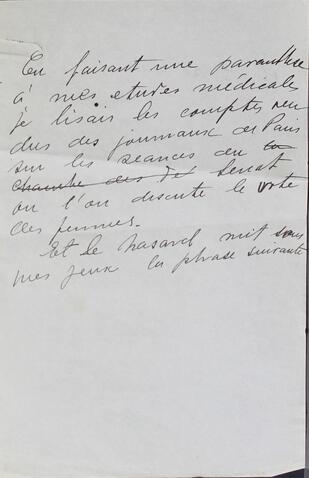 En faisant une paranthèse
à mes etudes médicales
je lisais les comptes ren
dus des journaux de Paris
sur les seances du la
chambre des de Senat
ou l'on discute le vote
des femmes.
Et le hasard mit sous
mes yeux la phrase suivante